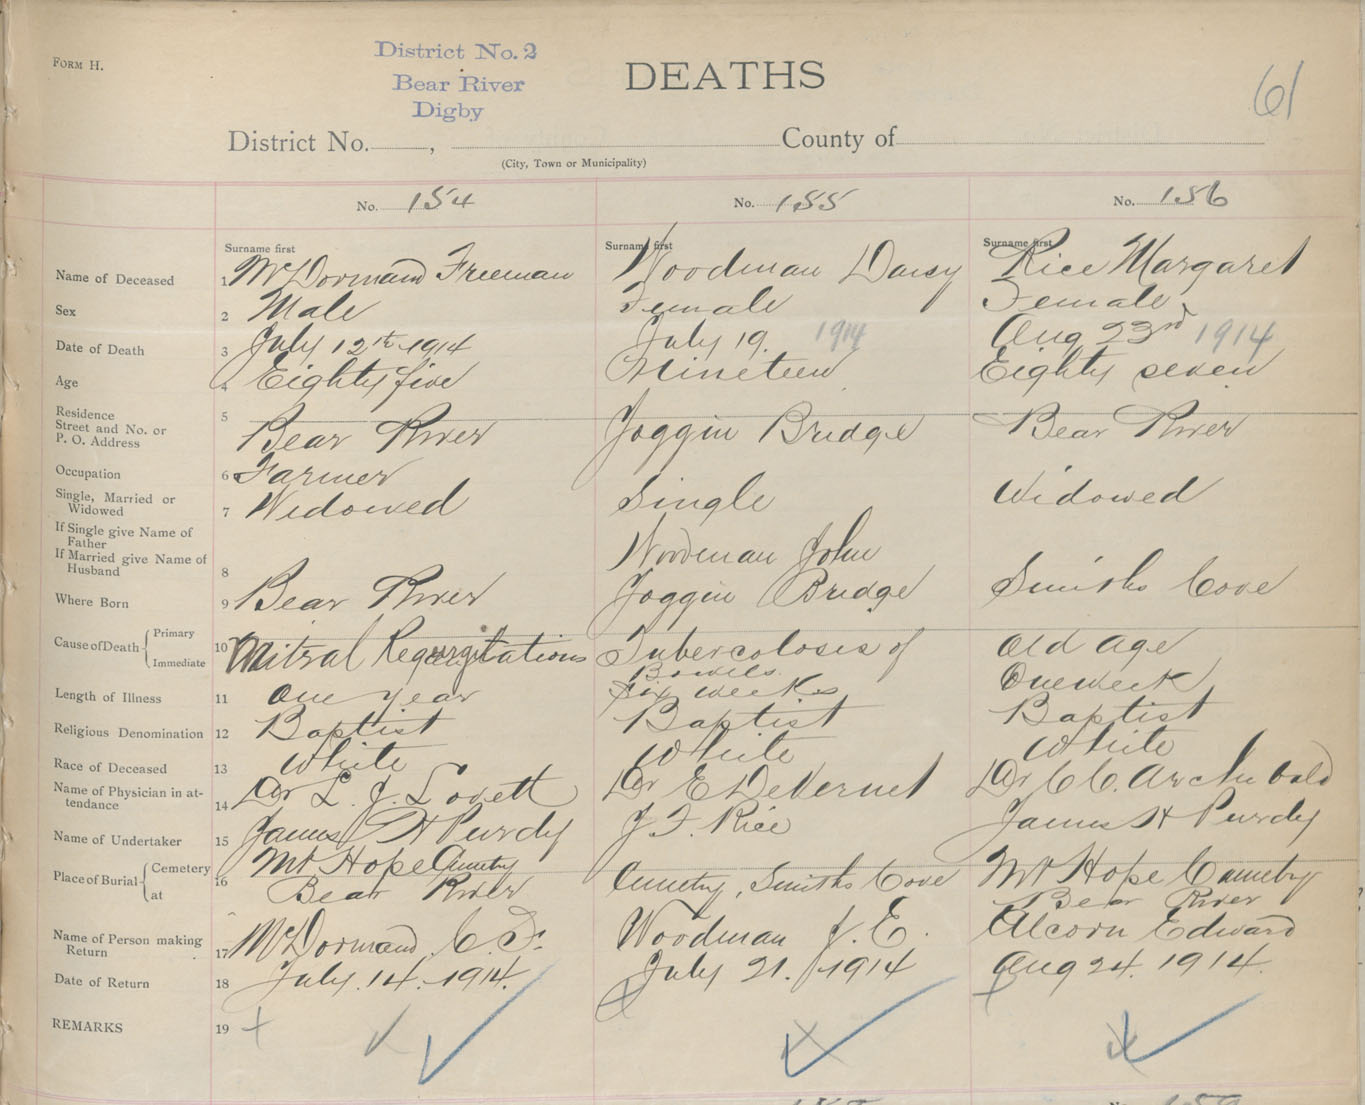 FORM H.
District No. 2
Bear River
Digby
DEATHS
61
District No. , County of
(City, Town or Municipality)
No. 154 No. 155 No. 156
Surname first Surname first Surname first
Name of Deceased 1 McDormand Freeman Woodman Daisy Rice Margaret
Sex 2 Male Female Female
Date of Death 3 July 12th 1914 July 19. 1914 Aug 23rd 1914
Age 4 Eighty five Nineteen Eighty seven
Residence Street and No. or P. O. Address 5 Bear River Joggin Bridge Bear River
Occupation 6 Farmer
Single, Married or Widowed 7 Widowed Single Widowed
If Single give Name of Father
If Married give Name of Husband 8 Woodman John
Where Born 9 Bear River Joggin Bridge Smiths Cove
Cause of Death { Primary Immediate 10 Mitral Regurgitations Tubercolosis of Bowels Old Age
Length of Illness 11 One year Six weeks One week
Religious Denomination 12 Baptist Baptist Baptist
Race of Deceased 13 White White White
Name of Physician in attendance 14 Dr L. J. Lovett Dr E DeVernet Dr C C. Archibald
Name of Undertaker 15 James H Purdy J. F. Rice James H Purdy
Place of Burial { Cemetery at 16 Mt Hope Cemetry Bear River Cemetry, Smiths Cove Mt Hope Cemetry Bear River
Name of Person making Return 17 McDormand C. F. Woodman J. E. Alcorn Edward
Date of Return 18 July. 14. 1914. July 21. 1914 Aug 24. 1914.
REMARKS 19